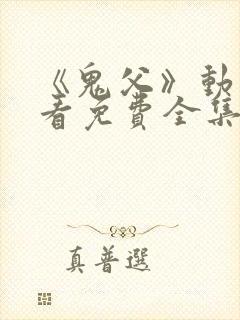 《鬼父》動
看免費全集
真普選